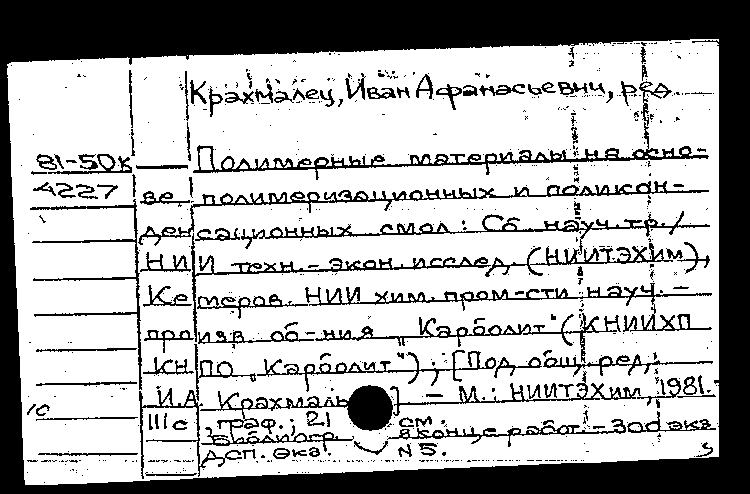 Крахмалец, Иван Афанасьевич, ред.
81-50к — Полимерные материалы на осно-
4227 ве полимеризационных и поликон-
денсационных смол: Сб. науч. тр. /
НИИ техн.-экон. исслед. (НИИТЭХим),
Кемеров. НИИ хим. пром-сти науч.-
произв. об-ния "Карболит" (КНИИХП
КНПО "Карболит"); [Под общ. ред.
И.А. Крахмаль ] - М.: НИИТЭХим, 1981.-
10 111с., граф.; 21 см.
Библиогр. в конце работ. - 300 экз.
Дсп. Экз. N 5.